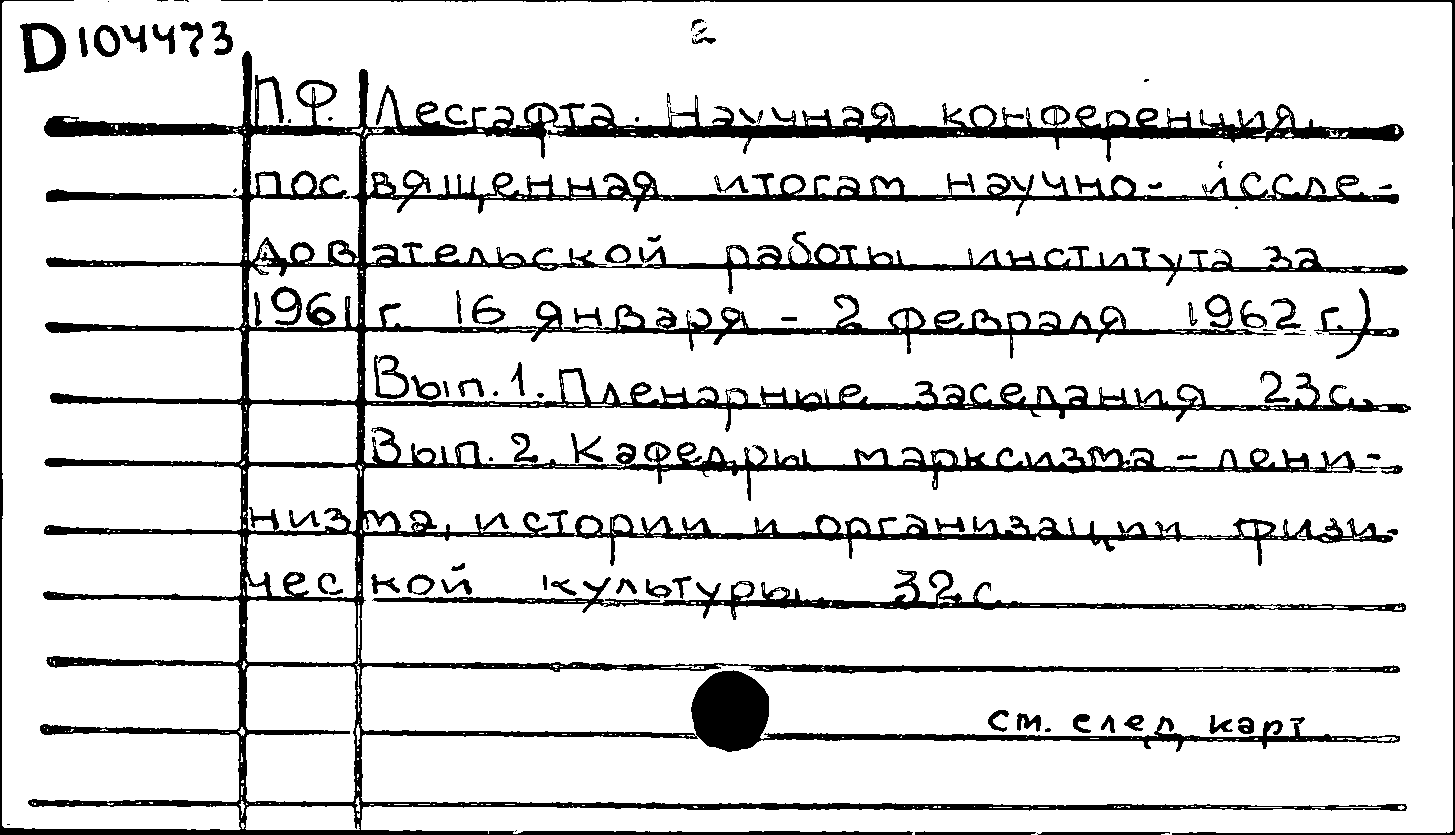 D 104473
2
П.Ф. Лесгафта. Научная конференция,
посвященная итогам научно-иссле-
довательской работы института за
1961 г. 16 января - 2 февраля 1962 г.)
Вып. 1. Пленарные заседания 23с.
Вып. 2. Кафедры марксизма-лени-
низма, истории и организации физи-
ческой культуры. 32с
см. след карт.